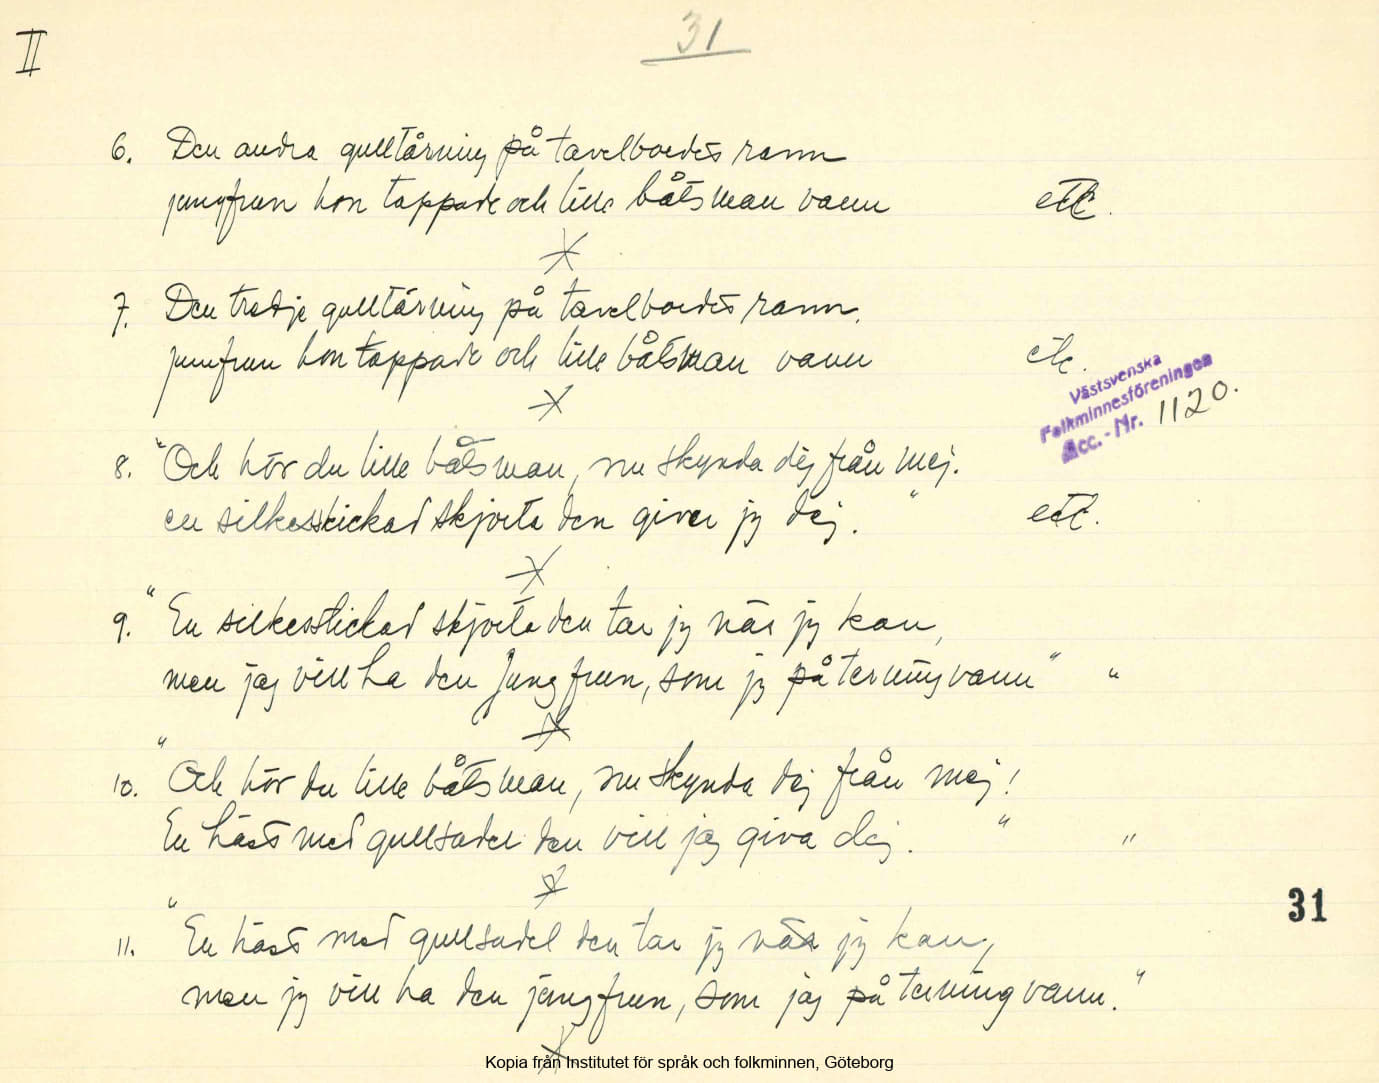 II
31
6. Den andra gulltärning på tavelbordets rann
jungfrun hon tappade och lille båtsman vann etc.
7. Den tredje gulltärning på tavelbordets rann.
jumfrun hon tappade och lille båtsman vann etc.
Västsvenska
Folkminnesföreningen
Acc.-Nr. 1120.
8. "Och hör du lille båtsman, nu skynda dej från mej.
en silkesstickad skjorta den giver jag dej." etc.
9. "En silkesstickad skjorta den tar jag när jag kan,
men jag vill ha den Jungfrun, som jag på terning vann" "
10. "Och hör du lille båtsman, nu skynda dej från mej!
En häst med gullsadel den vill jag giva dej." "
31
11. "En häst med gullsadel den tar jag när jag kan,
men jag vill ha den jungfrun, som jag på terning vann."
Kopia från Institutet för språk och folkminnen, Göteborg